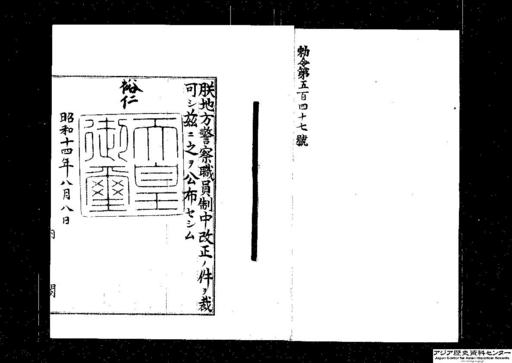 勅令第五百四十七號
朕地方警察職員制中改正ノ件ヲ裁
可シ茲ニ之ヲ公布セシム
裕仁
天皇
御璽
昭和十四年八月八日
内 閣
アジア歴史資料センター
Japan Center for Asian Historical Records